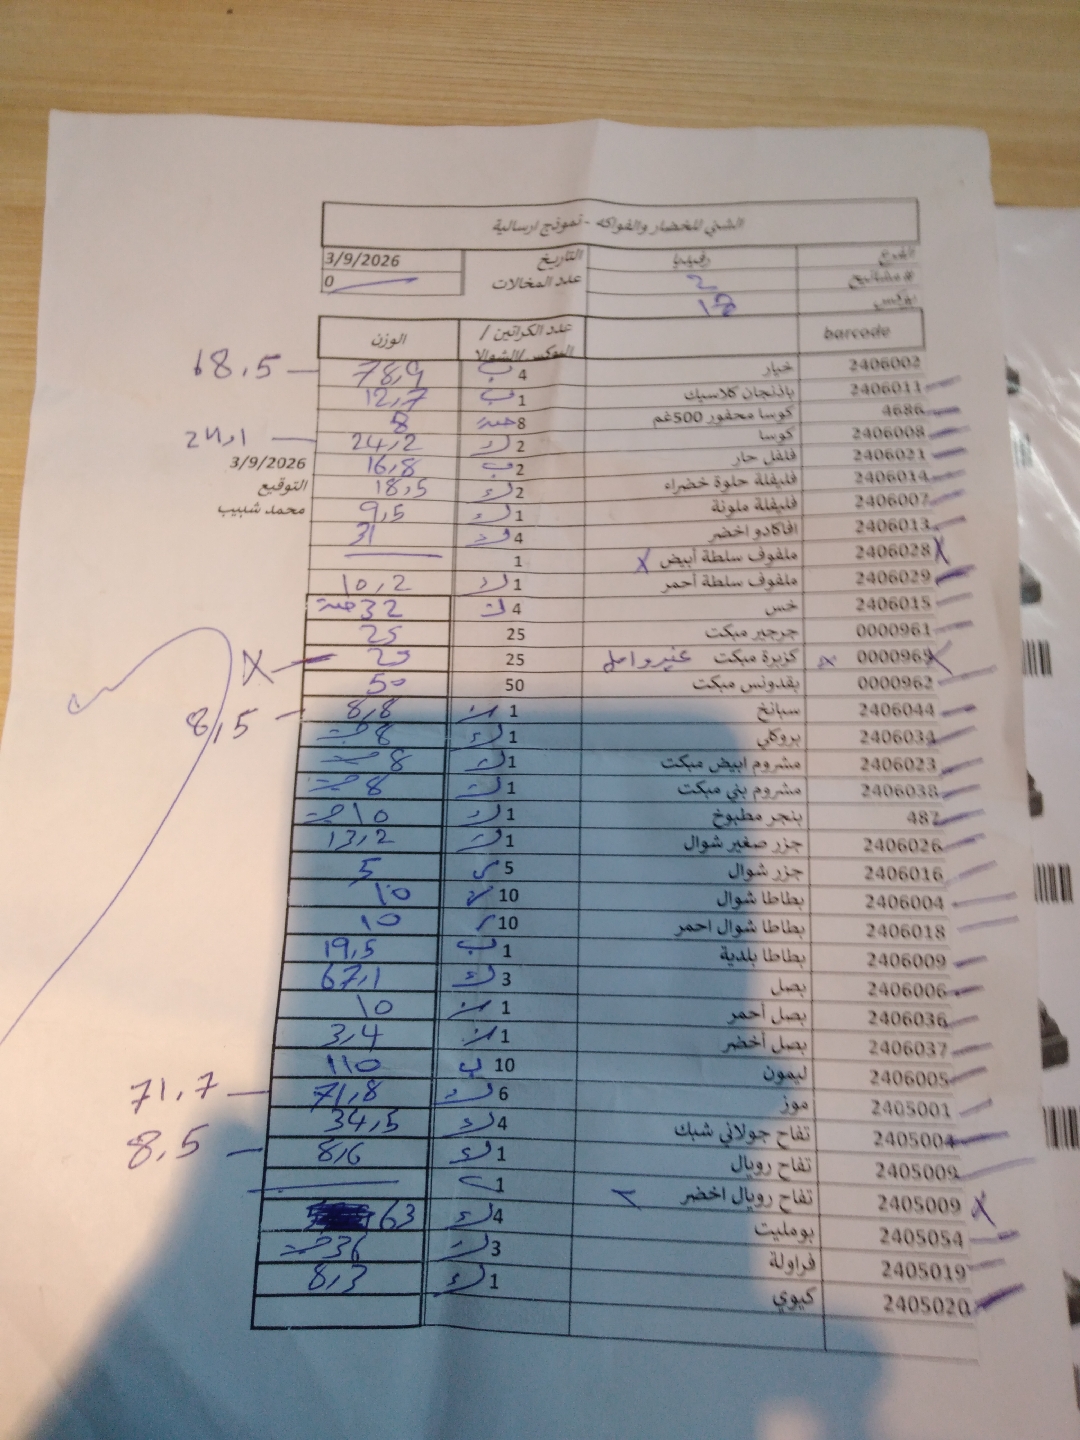 الشني للخضار والفواكه - نموذج ارسالية
الفرع رفيديا التاريخ 3/9/2026
# مشاتيح 2 عدد المخالات 0
بوكس
barcode عدد الكراتين / البوكس/الشوالا الوزن
2406002 خيار 4 ب 78,9 18,5
2406011 باذنجان كلاسيك 1 ب 12,7
4686 كوسا محفور 500غم 8 8
2406008 كوسا 2 ك 24,2 24,1
2406021 فلفل حار 2 ب 16,8 3/9/2026
2406014 فليفلة حلوة خضراء 2 ك 18,5 التوقيع
2406007 فليفلة ملونة 1 ك 9,5 محمد شلبيب
2406013 افاكادو اخضر 4 ك 31
2406028 X ملفوف سلطة أبيض X 1
2406029 ملفوف سلطة أحمر 1 ك 10,2
2406015 خس 4 ك 32 حبة
0000961 جرجير مبكت 25 25
0000969 X كزبرة مبكت غير واصل 25 X
0000962 بقدونس مبكت 50 50
2406044 سبانخ 1 8,8 8,5
2406034 بروكلي 1 ك 8 حبة
2406023 مشروم ابيض مبكت 1 ك 8 حبة
2406038 مشروم بني مبكت 1 ك 8 حبة
487 بنجر مطبوخ 1 ك 10 حبة
2406026 جزر صغير شوال 1 ك 13,2
2406016 جزر شوال 5 5
2406004 بطاطا شوال 10 10
2406018 بطاطا شوال احمر 10 10
2406009 بطاطا بلدية 1 ب 19,5
2406006 بصل 3 ك 67,1
2406036 بصل أحمر 1 10
2406037 بصل أخضر 1 3,4
2406005 ليمون 10 ب 110
2405001 موز 6 ك 71,8 71,7
2405004 تفاح جولاني شبك 4 ك 34,5
2405009 تفاح رويال 1 ك 8,6 8,5
2405009 X تفاح رويال اخضر 1
2405054 بومليت 4 ك 63
2405019 فراولة 3 ك 36 حبة
2405020 كيوي 1 ك 8,3